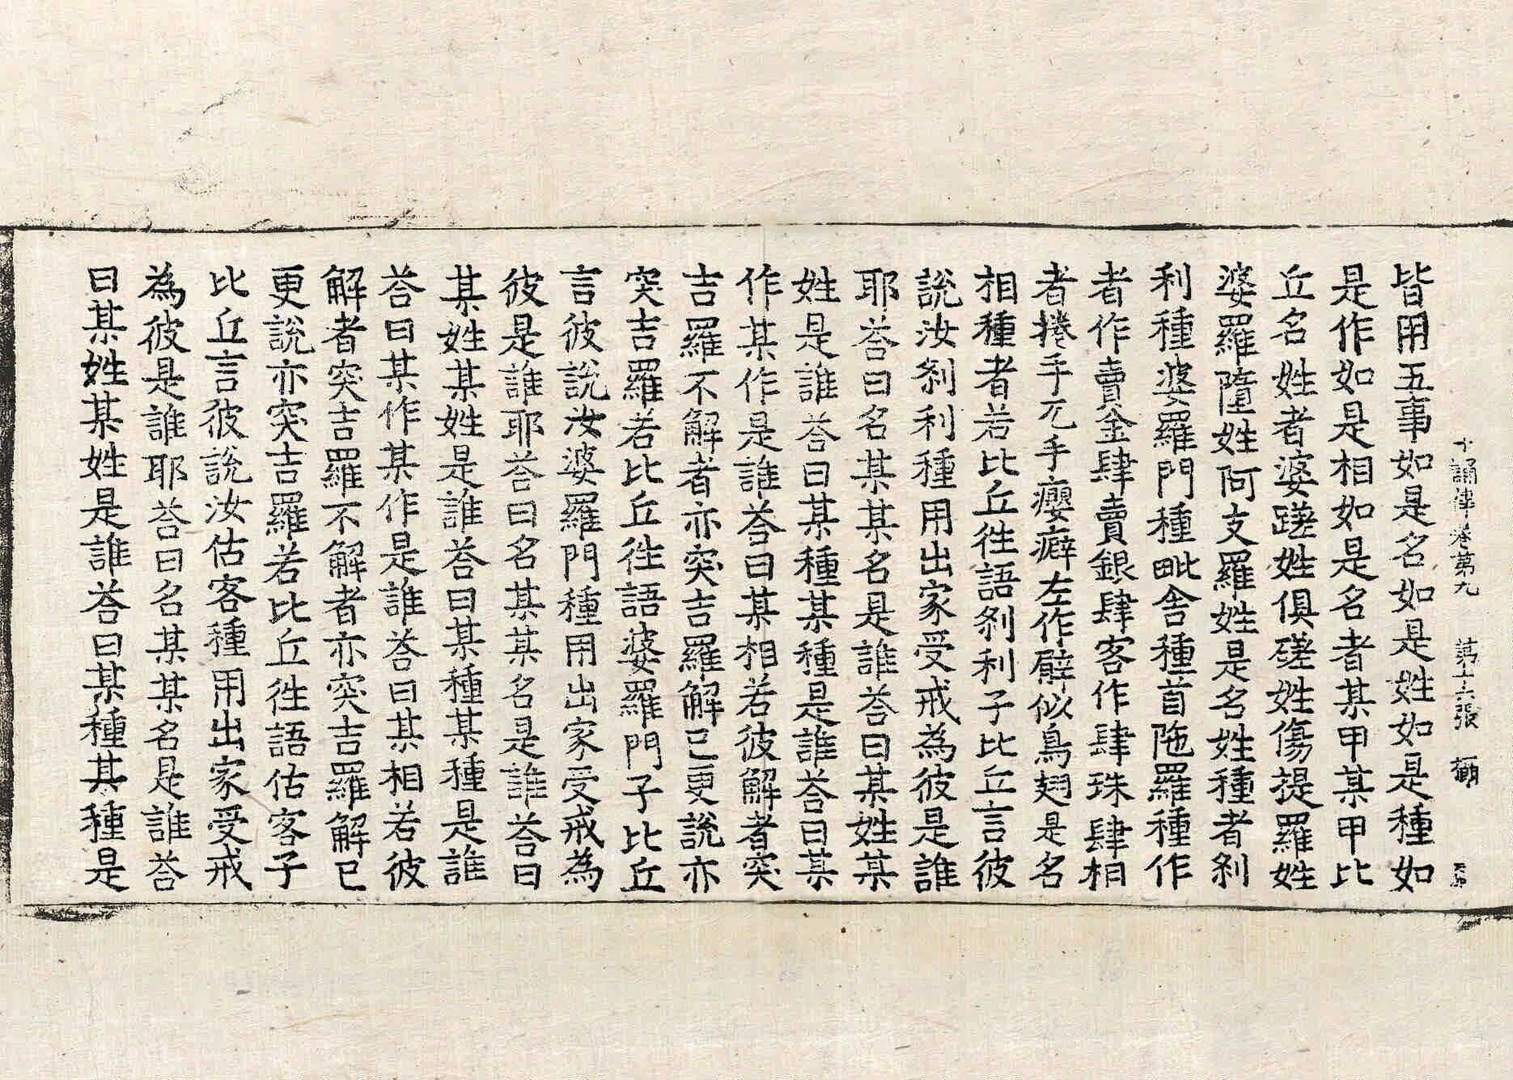 十誦律卷第九 第十六張
皆用五事如是名如是姓如是種如
是作如是相如是名者某甲某甲比
丘名姓者婆蹉姓俱磋姓傷提羅姓
婆羅墮姓阿支羅姓是名姓種者刹
利種婆羅門種毗舍種首陁羅種作
者作賣金肆賣銀肆客作肆珠肆相
者捲手兀手癭癖左作臂似鳥翅是名
相種者若比丘往語刹利子比丘言彼
說汝刹利種用出家受戒為彼是誰
耶荅曰名某某名是誰荅曰某姓某
姓是誰荅曰某種某種是誰荅曰某
作某作是誰荅曰某相若彼解者突
吉羅不解者亦突吉羅解已更說亦
突吉羅若比丘往語婆羅門子比丘
言彼說汝婆羅門種用出家受戒為
彼是誰耶荅曰名某某名是誰荅曰
某姓某姓是誰荅曰某種某種是誰
荅曰某作某作是誰荅曰某相若彼
解者突吉羅不解者亦突吉羅解已
更說亦突吉羅若比丘往語估客子
比丘言彼說汝估客種用出家受戒
為彼是誰耶荅曰名某某名是誰荅
曰某姓某姓是誰荅曰某種某種是